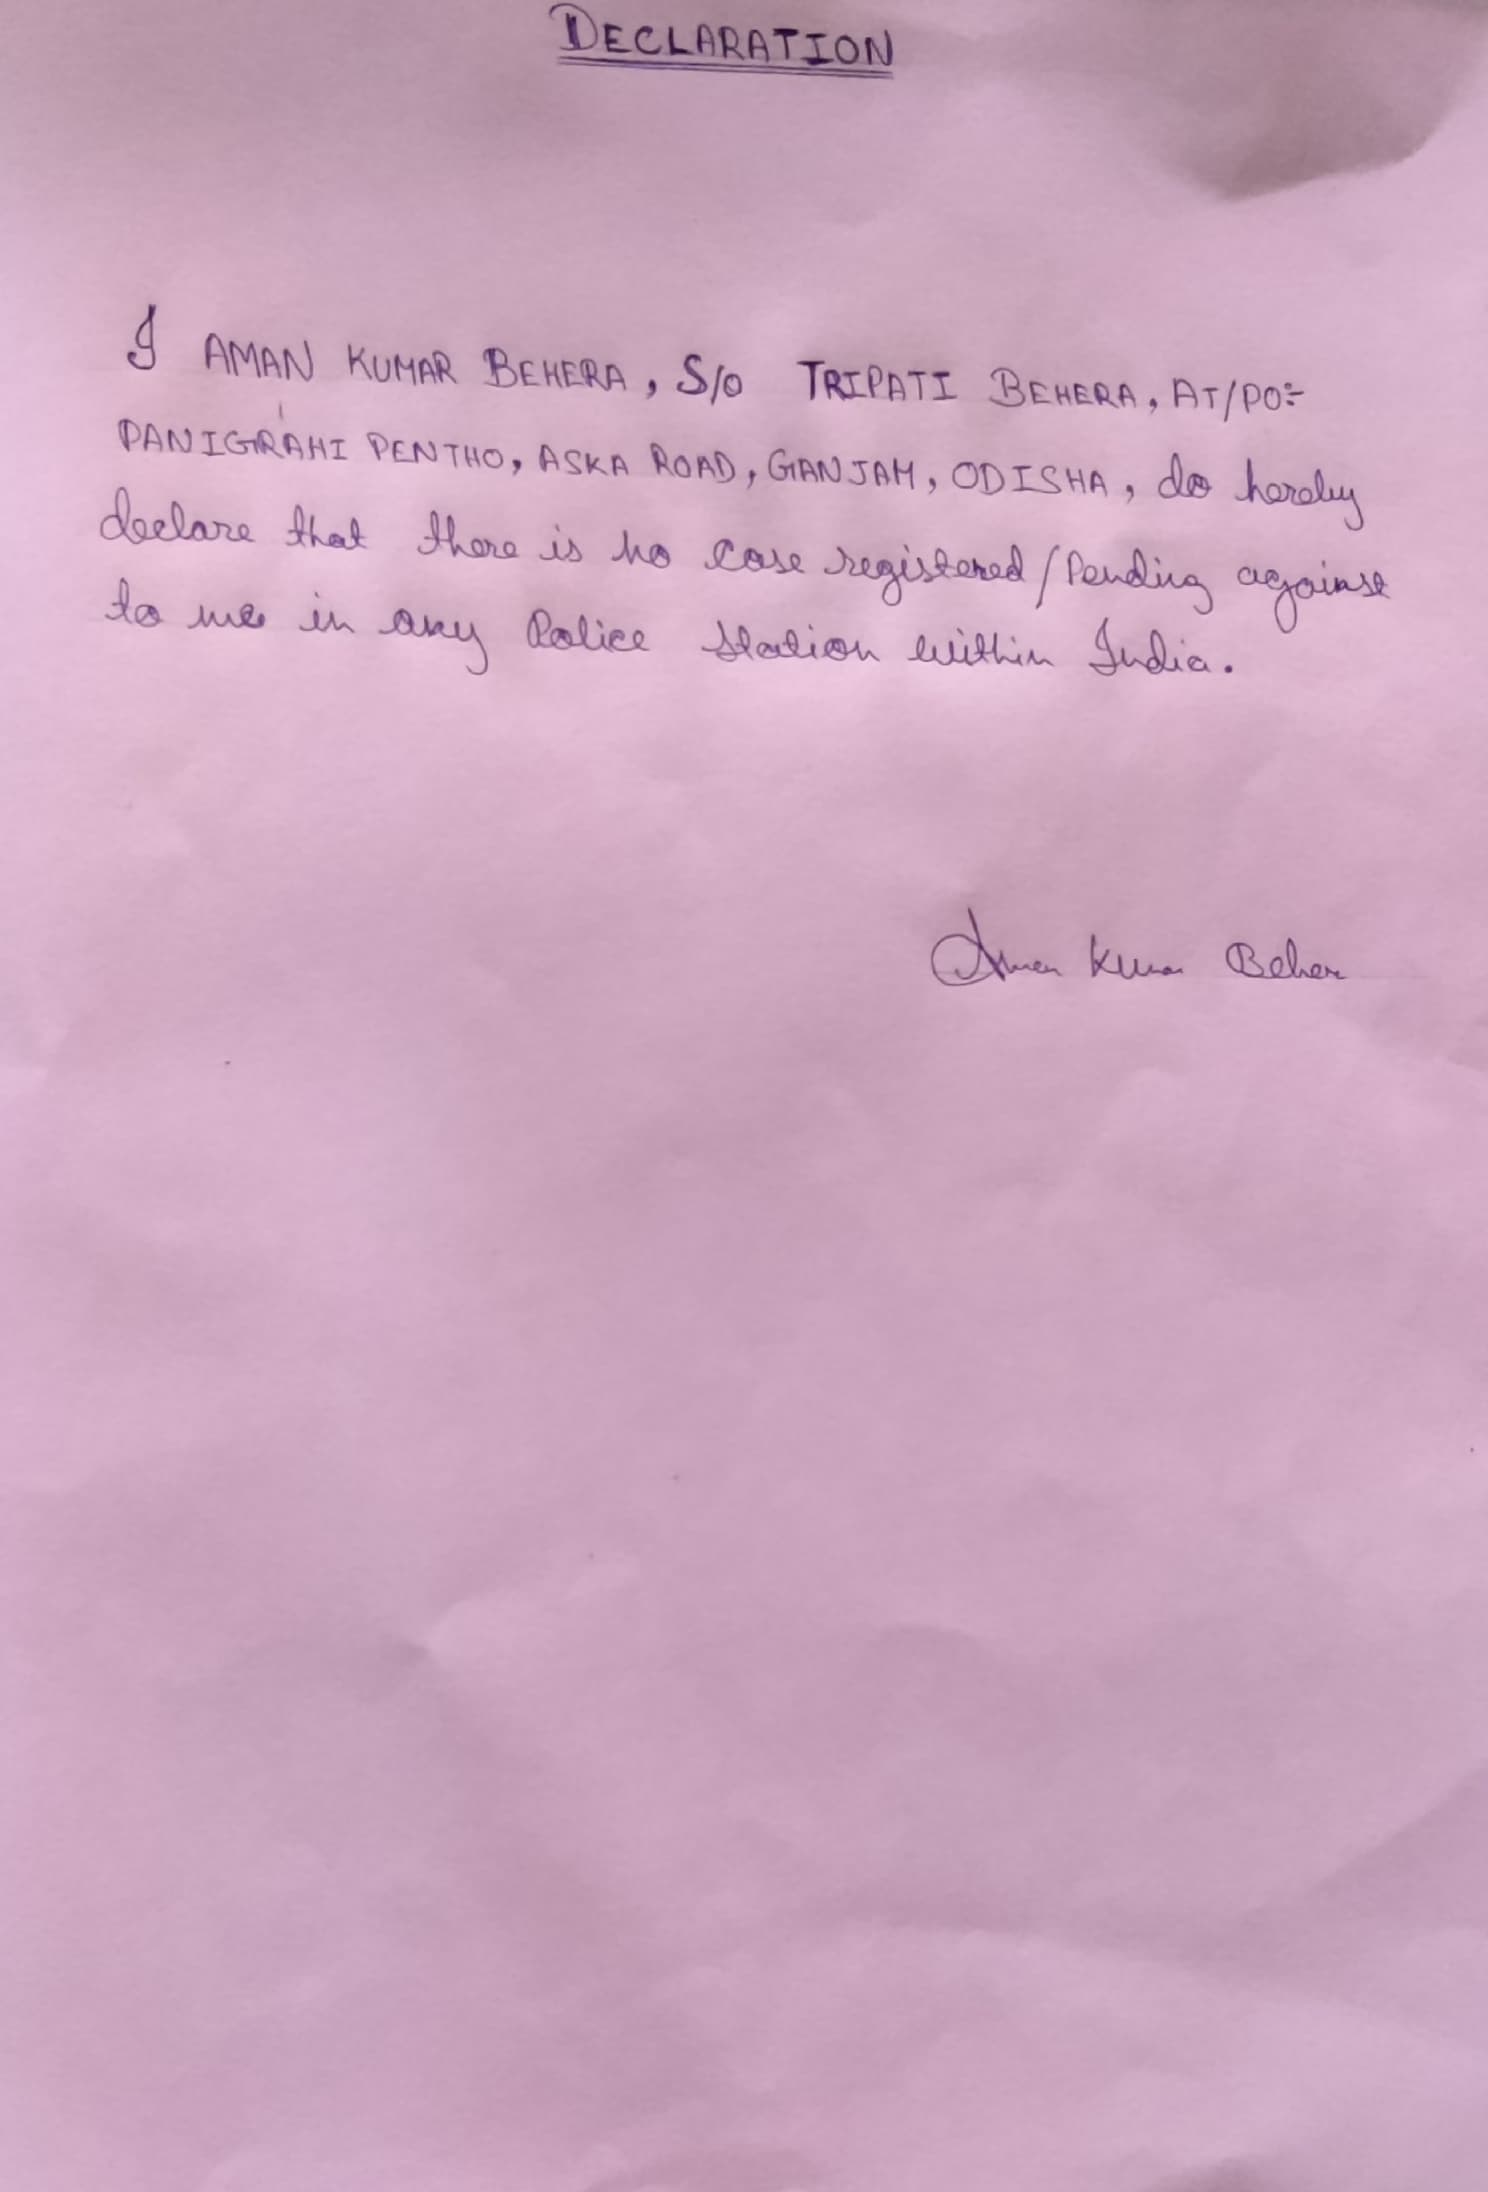 DECLARATION
I AMAN KUMAR BEHERA, S/O TRIPATI BEHERA, AT/PO:-
PANIGRAHI PENTHO, ASKA ROAD, GANJAM, ODISHA, do hereby
declare that there is no case registered/Pending against
to me in any Police Station within India.
Aman Kumar Behera